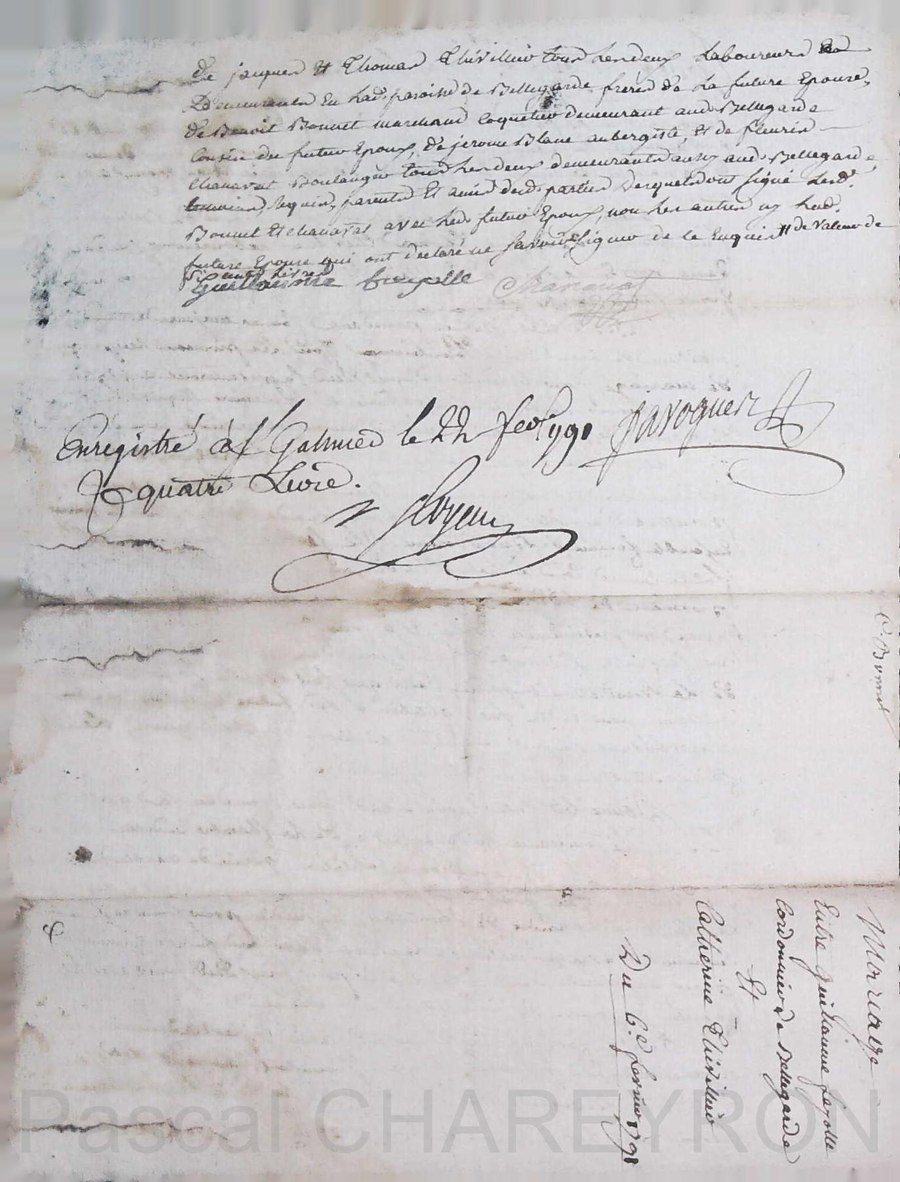 de jaques et Thomas Thivillier tous les deux Laboureurs
demeurants en lad. paroisse de Bellegarde freres de la future Epouse,
de Benoit Bonnet marchand coquetier demeurant aud. Bellegarde
Cousin du futur Epoux, de jerome Blanc aubergiste, et de fleurie
Chanavat Boulanger tous les deux demeurants aussy aud. Bellegarde
temoins requis, parents et amis desd. parties desquels ont signé lesd.
Bonnet et chanavat avec led. futur Epoux, non les autres ny lad.
future Epouse qui ont declaré ne savoir signer de ce Enquis # de valeur de
livres
Guillaume fayolle Chanavat
Enregistré à St Galmier le 22 fevr 1791 javogues
R quatre Livre.
Mariage
Entre guillaume fayolle
Cordonnier de Bellegarde
Et
Catherine Thivillier
Du 6.e fevrier 1791
Bonnet
Pascal CHAREYRON